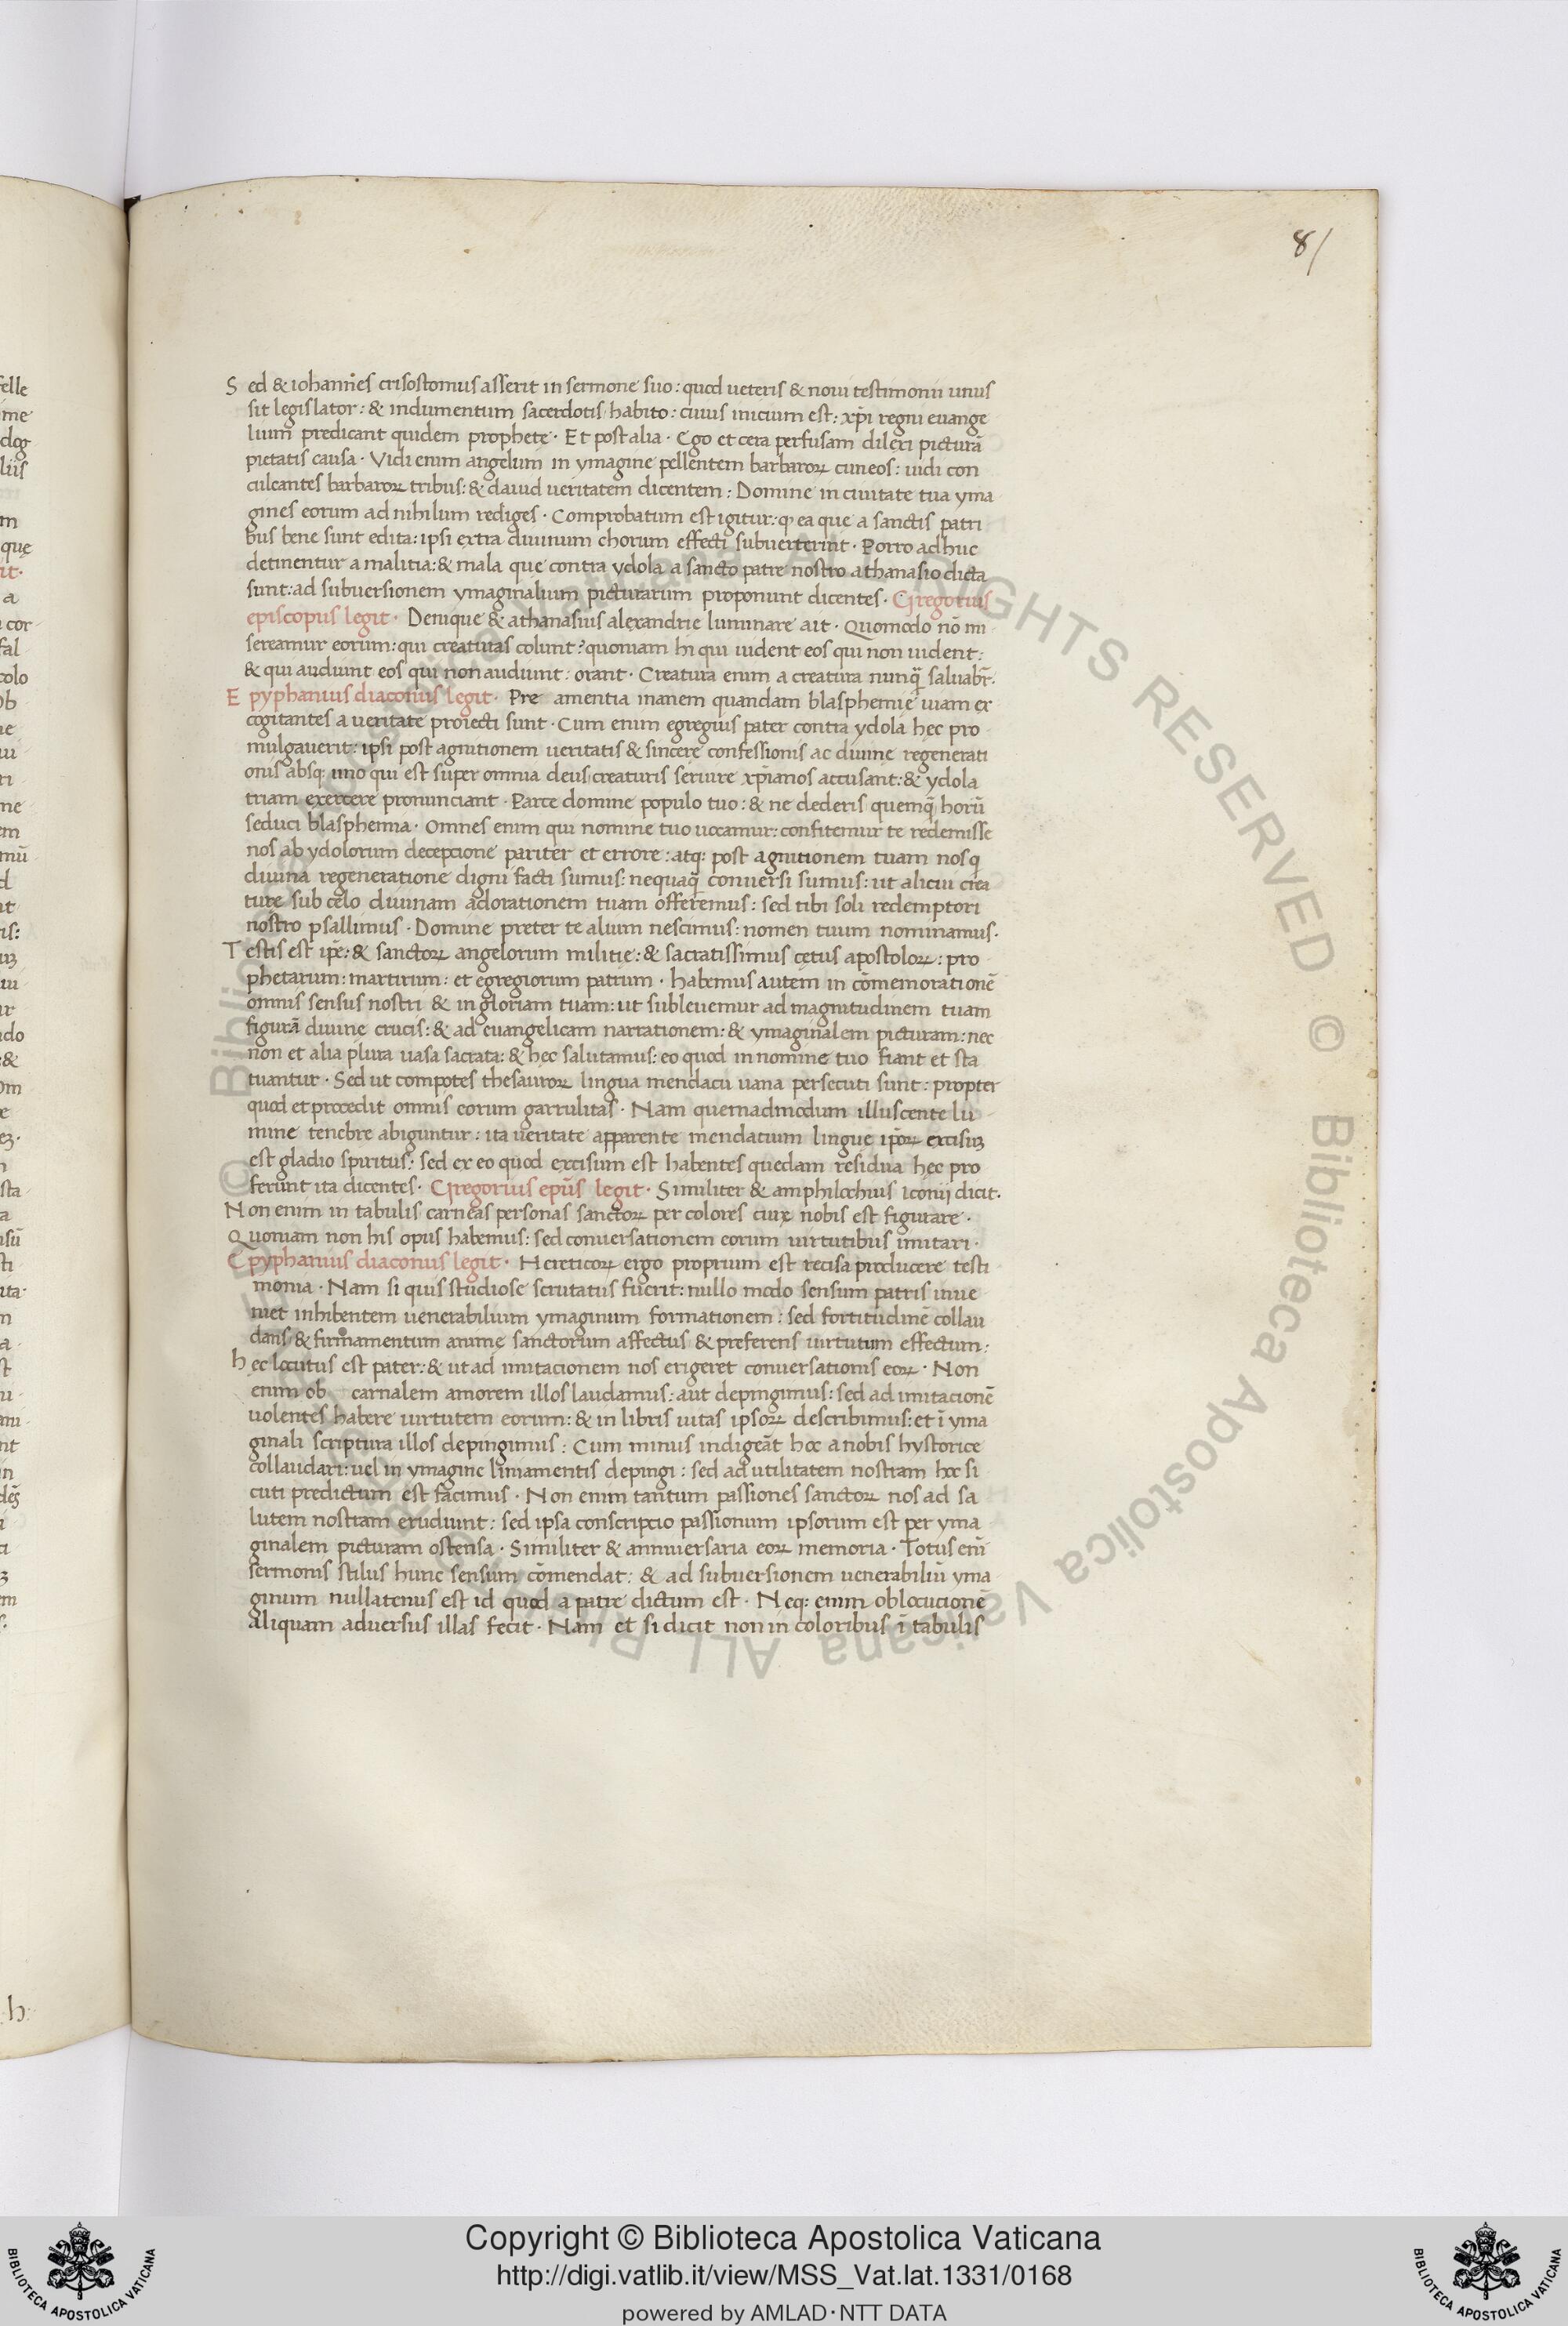 81
Sed & iohannes crisostomus asserit in sermone suo: quod ueteris & noui testimonii unus
sit legislator: & indumentum sacerdotis habito: cuius inicium est: xp̅i regni euange
lium predicant quidem prophete · Et post alia · Ego et cera perfusam dilexi picturā
pietatis causa · Vidi enim angelum in ymagine pellentem barbaroꝝ cuneos: uidi con
culcantes barbaroꝝ tribus: & dauid ueritatem dicentem: Domine in ciuitate tua yma
gines eorum ad nihilum rediges · Comprobatum est igitur: ꝙ ea que a sanctis patri
bus bene sunt edita: ipsi extra diuinum chorum effecti subuerterint · Porro adhuc
detinentur a malitia: & mala que contra ydola a sancto patre nostro athanasio dicta
sunt: ad subuersionem ymaginalium picturarum proponunt dicentes · Gregorius
episcopus legit · Denique & athanasius alexandrie luminare ait · Quomodo nō mi
sereamur eorum: qui creaturas colunt? quoniam hi qui uident eos qui non uident:
& qui audiunt eos qui non audiunt: orant · Creatura enim a creatura nunq̄ saluabr̄.
Epyphanius diaconus legit · Pre amentia inanem quandam blasphemie uiam ex
cogitantes a ueritate proiecti sunt · Cum enim egregius pater contra ydola hec pro
mulgauerit: ipsi post agnitionem ueritatis & sincere confessionis ac diuine regenerati
onis absq; uno qui est super omnia deus creaturis seruire xp̅ianos accusant: & ydola
triam exercere pronunciant · Parce domine populo tuo: & ne dederis quemq̄ horū
seduci blasphemia · Omnes enim qui nomine tuo uocamur: confitemur te redemisse
nos ab ydolorum decepcione pariter et errore: atq; post agnitionem tuam nosq
diuina regeneratione digni facti sumus: nequaq̄ conuersi sumus: ut alicui crea
ture sub celo diuinam adorationem tuam offeremus: sed tibi soli redemptori
nostro psallimus · Domine preter te alium nescimus: nomen tuum nominamus.
Testis est ip̅e: & sanctoꝝ angelorum militie: & sacratissimus cetus apostoloꝝ: pro
phetarum: martirum: et egregiorum patrum · habemus autem in cōmemorationē
omnis sensus nostri & in gloriam tuam: ut subleuemur ad magnitudinem tuam
figurā diuine crucis: & ad euangelicam narrationem: & ymaginalem picturam: nec
non et alia plura uasa sacrata: & hec salutamus: eo quod in nomine tuo fiant et sta
tuantur · Sed ut compotes thesauroꝝ lingua mendacii uana persecuti sunt: propter
quod et procedit omnis eorum garrulitas · Nam quemadmodum illuscente lu
mine tenebre abiguntur: ita ueritate apparente mendacium lingue ip̅oꝝ excisuꝫ
est gladio spiritus: sed ex eo quod excisum est habentes quedam residua hec pro
ferunt ita dicentes · Gregorius ep̅us legit · Similiter & amphilochius iconij dicit.
Non enim in tabulis carneas personas sanctoꝝ per colores cure nobis est figurare ·
Quoniam non his opus habemus: sed conuersationem eorum uirtutibus imitari ·
Epyphanius diaconus legit · Hereticoꝝ ergo proprium est recisa producere testi
monia · Nam si quis studiose scrutatus fuerit: nullo modo sensum patris inue
niet inhibentem uenerabilium ymaginum formationem: sed fortitudinē collau
dans & firmamentum anime sanctorum affectus & preferens uirtutum effectum:
hec locutus est pater: & ut ad imitacionem nos erigeret conuersationis eoꝝ · Non
enim ob carnalem amorem illos laudamus: aut depingimus: sed ad imitacionē
uolentes habere uirtutem eorum: & in libris uitas ipsoꝝ describimus: et ī yma
ginali scriptura illos depingimus: Cum minus indigeāt hoc a nobis hystorice
collaudari: uel in ymagine liniamentis depingi: sed ad utilitatem nostram hoc si
cuti predictum est facimus · Non enim tantum passiones sanctoꝝ nos ad sa
lutem nostram erudiunt: sed ipsa conscripcio passionum ipsorum est per yma
ginalem picturam ostensa · Similiter & anniuersaria eoꝝ memoria · Totus enī
sermonis stilus hunc sensum cōmendat: & ad subuersionem uenerabiliū yma
ginum nullatenus est id quod a patre dictum est · Neq; enim oblocucionē
aliquam aduersus illas fecit · Nam et si dicit non in coloribus ī tabulis
© Biblioteca Apostolica Vaticana ALL RIGHTS RESERVED © Biblioteca Apostolica Vaticana ALL RIGHTS RESERVED
BIBLIOTECA APOSTOLICA VATICANA
Copyright © Biblioteca Apostolica Vaticana
http://digi.vatlib.it/view/MSS_Vat.lat.1331/0168
powered by AMLAD·NTT DATA
BIBLIOTECA APOSTOLICA VATICANA